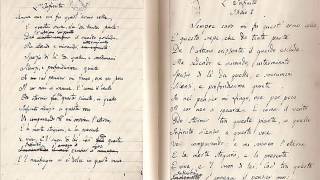 L'Infinito
caro mi fu quest'ermo colle,
E questa siepe, che da tanta parte
Ma sedendo e mirando,
Spazio di là da quella, e sovrumani
Silenzi, e profondissima quiete
Io nel pensier mi fingo, ove per poco
Il cor non si spaura. E come il vento
Odo stormir tra queste piante, io quello
Infinito silenzio a questa voce
Vo comparando: e mi sovvien l'eterno,
E le morte stagioni, e la presente
E viva, e il suon di lei. Così tra questa
E il naufragar m'è dolce in questo mare.
L'Infinito
Idillio I
Sempre caro mi fu quest'ermo colle,
E questa siepe, che da tanta parte
De l'ultimo orizzonte il guardo esclude.
Ma sedendo e mirando, interminato
Spazio di là da quella, e sovrumani
Silenzi, e profondissima quiete
Io nel pensier mi fingo, ove per poco
Il cor non si spaura. E come il vento
Odo stormir tra queste piante, io quello
Infinito silenzio a questa voce
Vo comparando: e mi sovvien l'eterno,
E le morte stagioni, e la presente
E viva, e 'l suon di lei. Così tra questa
s'annega il pensier mio:
E 'l naufragar m'è dolce in questo mare.